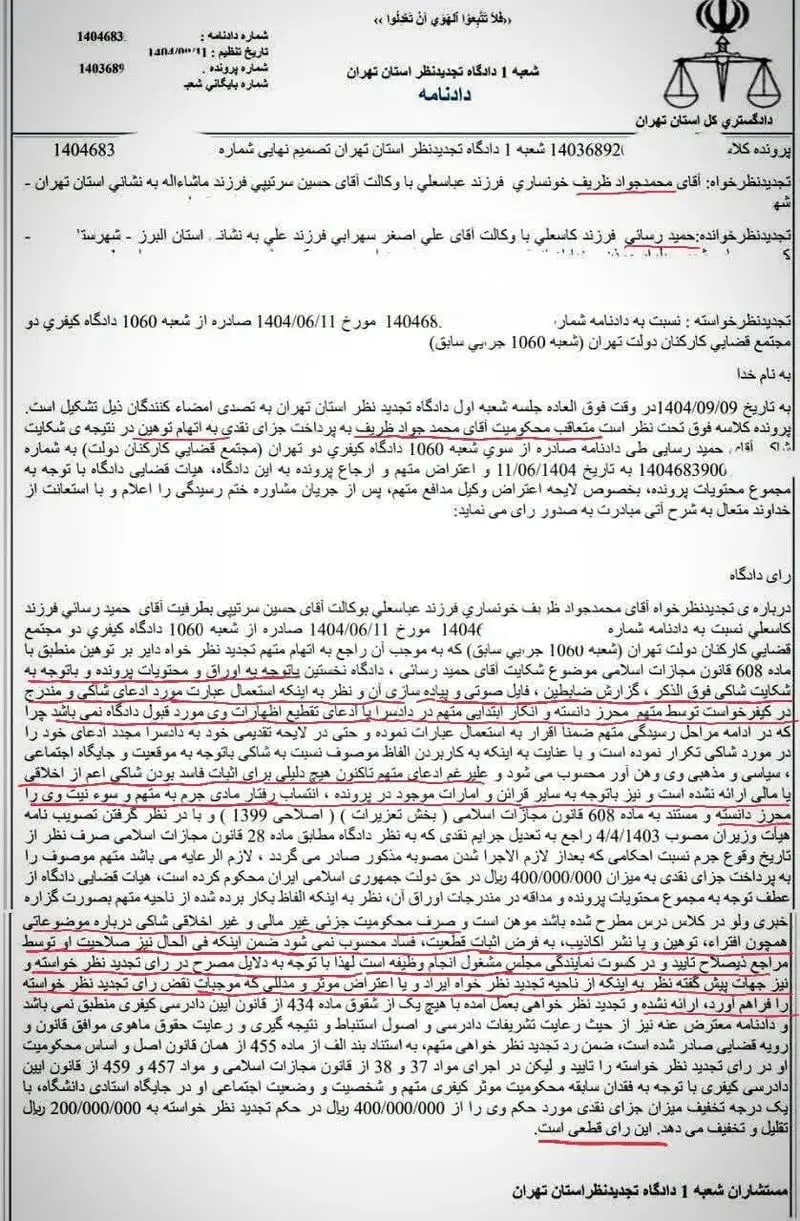 «فلا تَتَّبِعُوا الهَوي اَنْ تَعْدِلُوا»
شماره دادنامه : 1404683
تاریخ تنظیم :
شماره پرونده : 1403689
شماره بایگاني شعبه
شعبه 1 دادگاه تجدیدنظر استان تهران
دادنامه
دادگستري کل استان تهران
پرونده کلاسه 14036892 شعبه 1 دادگاه تجدیدنظر استان تهران تصمیم نهایی شماره 1404683
تجدیدنظرخواه: آقای محمدجواد ظریف خونساري فرزند عباسعلي با وکالت آقای حسین سرتیپي فرزند ماشاءاله به نشاني استان تهران -
شه
تجدیدنظرخوانده:حمید رسائي فرزند کاسعلي با وکالت آقای علي اصغر سهرابي فرزند علي به نشانی استان البرز - شهرستا -
تجدیدنظرخواسته : نسبت به دادنامه شماره 140468 مورخ 1404/06/11 صادره از شعبه 1060 دادگاه کیفري دو
مجتمع قضايي کارکنان دولت تهران (شعبه 1060 جزايي سابق)
به نام خدا
به تاریخ 1404/09/09در وقت فوق العاده جلسه شعبه اول دادگاه تجدید نظر استان تهران به تصدی امضاء کنندگان ذیل تشکیل است.
پرونده کلاسه فوق تحت نظر است متعاقب محکومیت آقای محمد جواد ظریف به پرداخت جزای نقدی به اتهام توهین در نتیجه ی شکایت
آقای حمید رسایی طی دادنامه صادره از سوي شعبه 1060 دادگاه کیفري دو تهران (مجتمع قضایی کارکنان دولت) به شماره
1404683900 به تاریخ 11/06/1404 و اعتراض متهم و ارجاع پرونده به این دادگاه، هیات قضایی دادگاه با توجه به
مجموع محتویات پرونده، بخصوص لایحه اعتراض وکیل مدافع متهم، پس از جریان مشاوره ختم رسیدگی را اعلام و با استعانت از
خداوند متعال به شرح آتی مبادرت به صدور رای می نماید:
رای دادگاه
درباره ی تجدیدنظرخواه آقای محمدجواد ظریف خونساري فرزند عباسعلي بوکالت آقای حسین سرتیپی بطرفیت آقای حمید رسائي فرزند
کاسعلي نسبت به دادنامه شماره 1404 مورخ 1404/06/11 صادره از شعبه 1060 دادگاه کیفري دو مجتمع
قضايي کارکنان دولت تهران (شعبه 1060 جزايي سابق) که به موجب آن راجع به اتهام متهم تجدید نظر خواه دایر بر توهین منطبق با
ماده 608 قانون مجازات اسلامی موضوع شکایت آقای حمید رسائی ، دادگاه نخستین باتوجه به اوراق و محتویات پرونده و باتوجه به
شکایت شاکی فوق الذکر ، گزارش ضابطین ، فایل صوتی و پیاده سازی آن و نظر به اینکه استعمال عبارت مورد ادعای شاکی و مندرج
در کیفرخواست توسط متهم محرز دانسته و انکار ابتدایی متهم در دادسرا با ادعای تقطیع اظهارات وی مورد قبول دادگاه نمی باشد چرا
که در ادامه مراحل رسیدگی متهم ضمنا اقرار به استعمال عبارات نموده و حتی در لایحه تقدیمی خود به دادسرا مجدد ادعای خود را
در مورد شاکی تکرار نموده است و با عنایت به اینکه به کاربردن الفاظ موصوف نسبت به شاکی باتوجه به موقعیت و جایگاه اجتماعی
، سیاسی و مذهبی وی وهن آور محسوب می شود و علیرغم ادعای متهم تاکنون هیچ دلیلی برای اثبات فاسد بودن شاکی اعم از اخلاقی
یا مالی ارائه نشده است و نیز باتوجه به سایر قرائن و امارات موجود در پرونده ، انتساب رفتار مادی جرم به متهم و سوء نیت وی را
محرز دانسته و مستند به ماده 608 قانون مجازات اسلامی ( بخش تعزیرات ) ( اصلاحی 1399 ) و با در نظر گرفتن تصویب نامه
هیأت وزیران مصوب 4/4/1403 راجع به تعدیل جرایم نقدی که به نظر دادگاه مطابق ماده 28 قانون مجازات اسلامی صرف نظر از
تاریخ وقوع جرم نسبت احکامی که بعداز لازم الاجرا شدن مصوبه مذکور صادر می گردد ، لازم الرعایه می باشد متهم موصوف را
به پرداخت جزای نقدی به میزان 400/000/000 ریال در حق دولت جمهوری اسلامی ایران محکوم کرده است، هیات قضایی دادگاه از
عطف توجه به مجموع محتویات پرونده و مداقه در مندرجات اوراق آن، نظر به اینکه الفاظ بکار برده شده از ناحیه متهم بصورت گزاره
خبری ولو در کلاس درس مطرح شده باشد موهن است و صرف محکومیت جزئی غیر مالی و غیر اخلاقی شاکی درباره موضوعاتی
همچون افتراء، توهین و یا نشر اکاذیب، به فرض اثبات قطعیت، فساد محسوب نمی شود ضمن اینکه فی الحال نیز صلاحیت او توسط
مراجع ذیصلاح تایید و در کسوت نمایندگی مجلس مشغول انجام وظیفه است لهذا با توجه به دلایل مصرح در رای تجدید نظر خواسته و
نیز جهات پیش گفته نظر به اینکه از ناحیه تجدید نظر خواه ایراد و یا اعتراض موثر و مدللی که موجبات نقض رای تجدید نظر خواسته
را فراهم آورد، ارائه نشده و تجدید نظر خواهی بعمل آمده با هیچ یک از شقوق ماده 434 از قانون آیین دادرسی کیفری منطبق نمی باشد
و دادنامه معترض عنه نیز از حیث رعایت تشریفات دادرسی و اصول استنباط و نتیجه گیری و رعایت حقوق ماهوی موافق قانون و
رویه قضایی صادر شده است، ضمن رد تجدید نظر خواهی متهم، به استناد بند الف از ماده 455 از همان قانون اصل و اساس محکومیت
او در رای تجدید نظر خواسته را تایید و لیکن در اجرای مواد 37 و 38 از قانون مجازات اسلامی و مواد 457 و 459 از قانون آیین
دادرسی کیفری با توجه به فقدان سابقه محکومیت موثر کیفری متهم و شخصیت و وضعیت اجتماعی او در جایگاه استادی دانشگاه، با
یک درجه تخفیف میزان جزای نقدی مورد حکم وی را از 400/000/000 ریال در حکم تجدید نظر خواسته به 200/000/000 ریال
تقلیل و تخفیف می دهد. این رای قطعی است.
مستشاران شعبه 1 دادگاه تجدیدنظراستان تهران